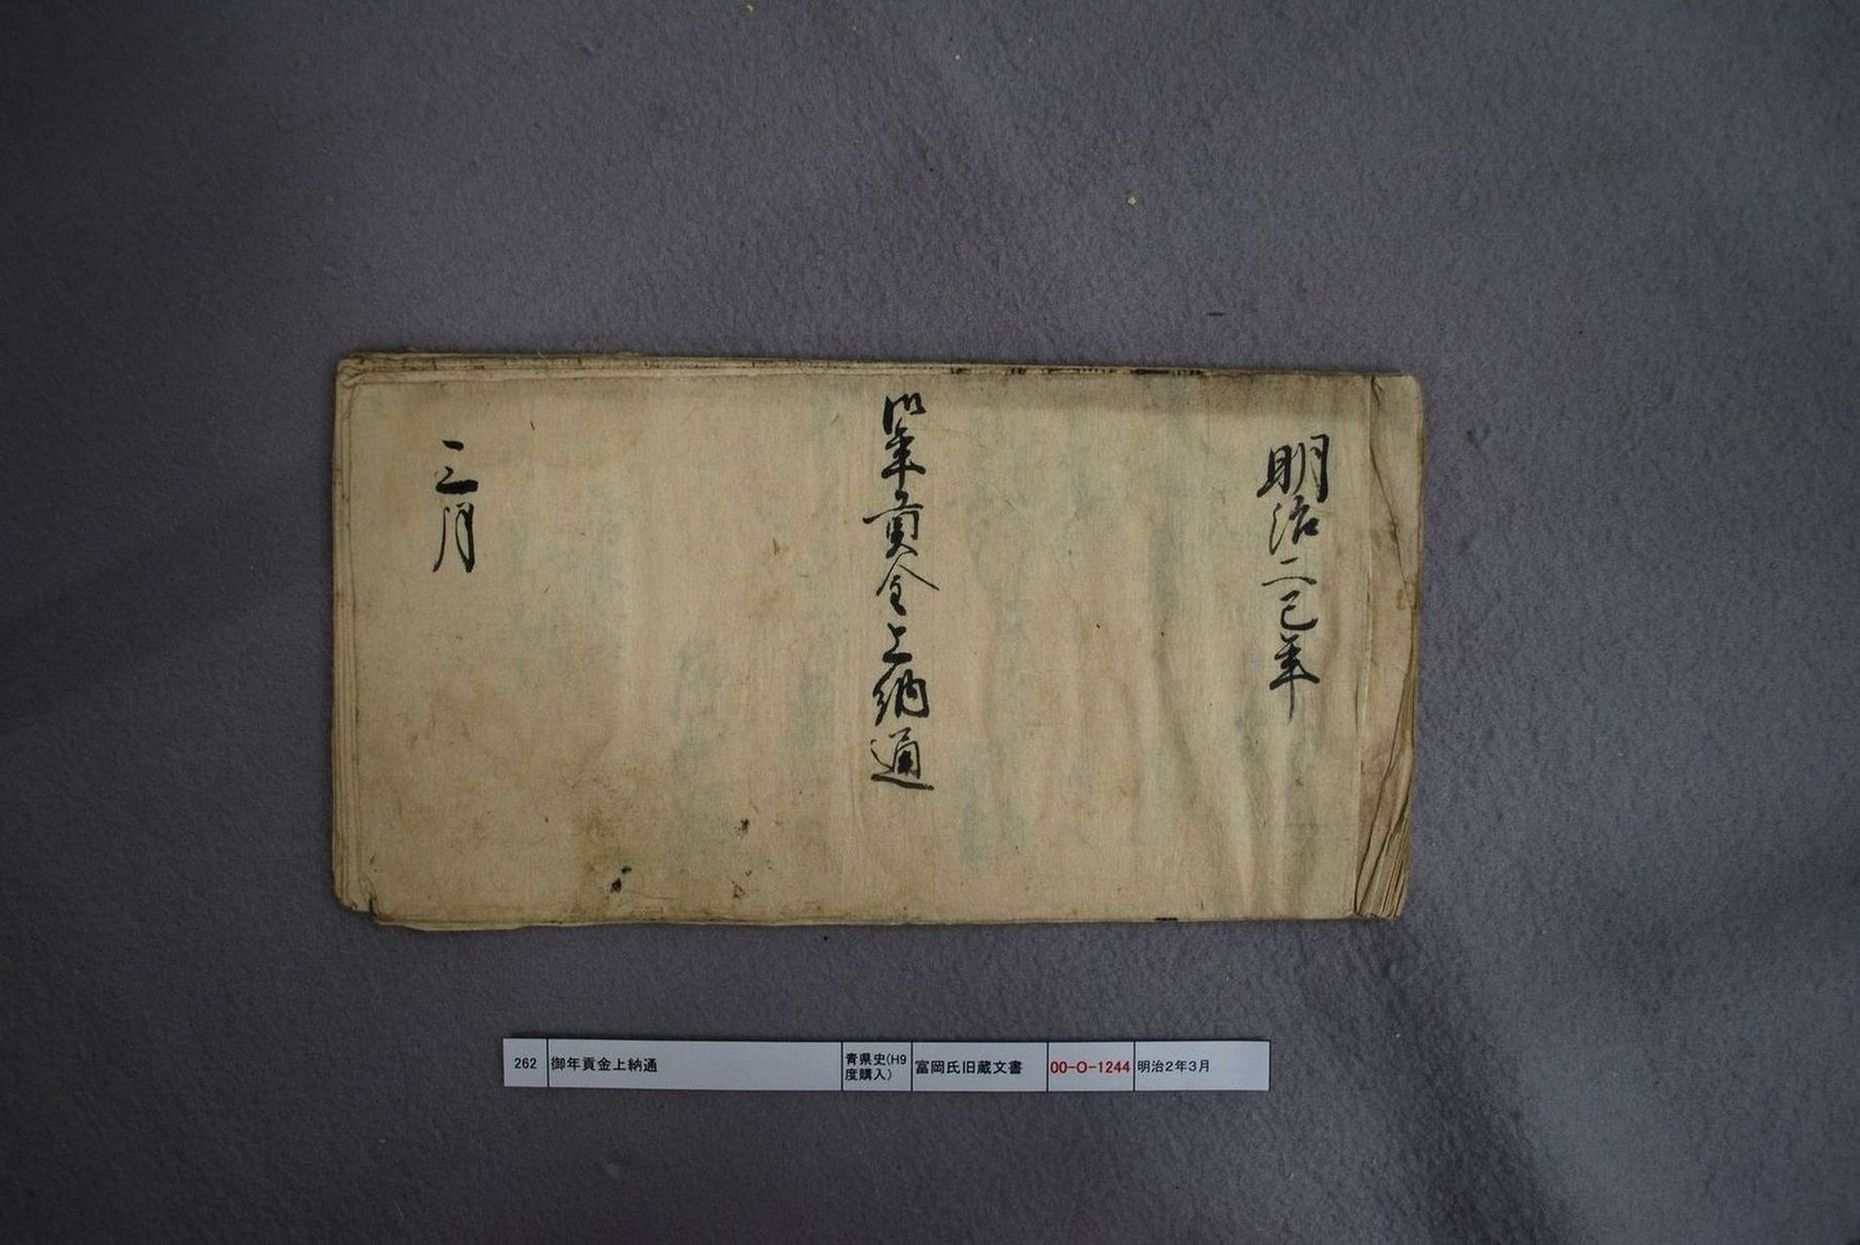 明治二巳年
御年貢金上納通
三月
262 御年貢金上納通 青県史(H9度購入) 富岡氏旧蔵文書 00-O-1244 明治2年3月